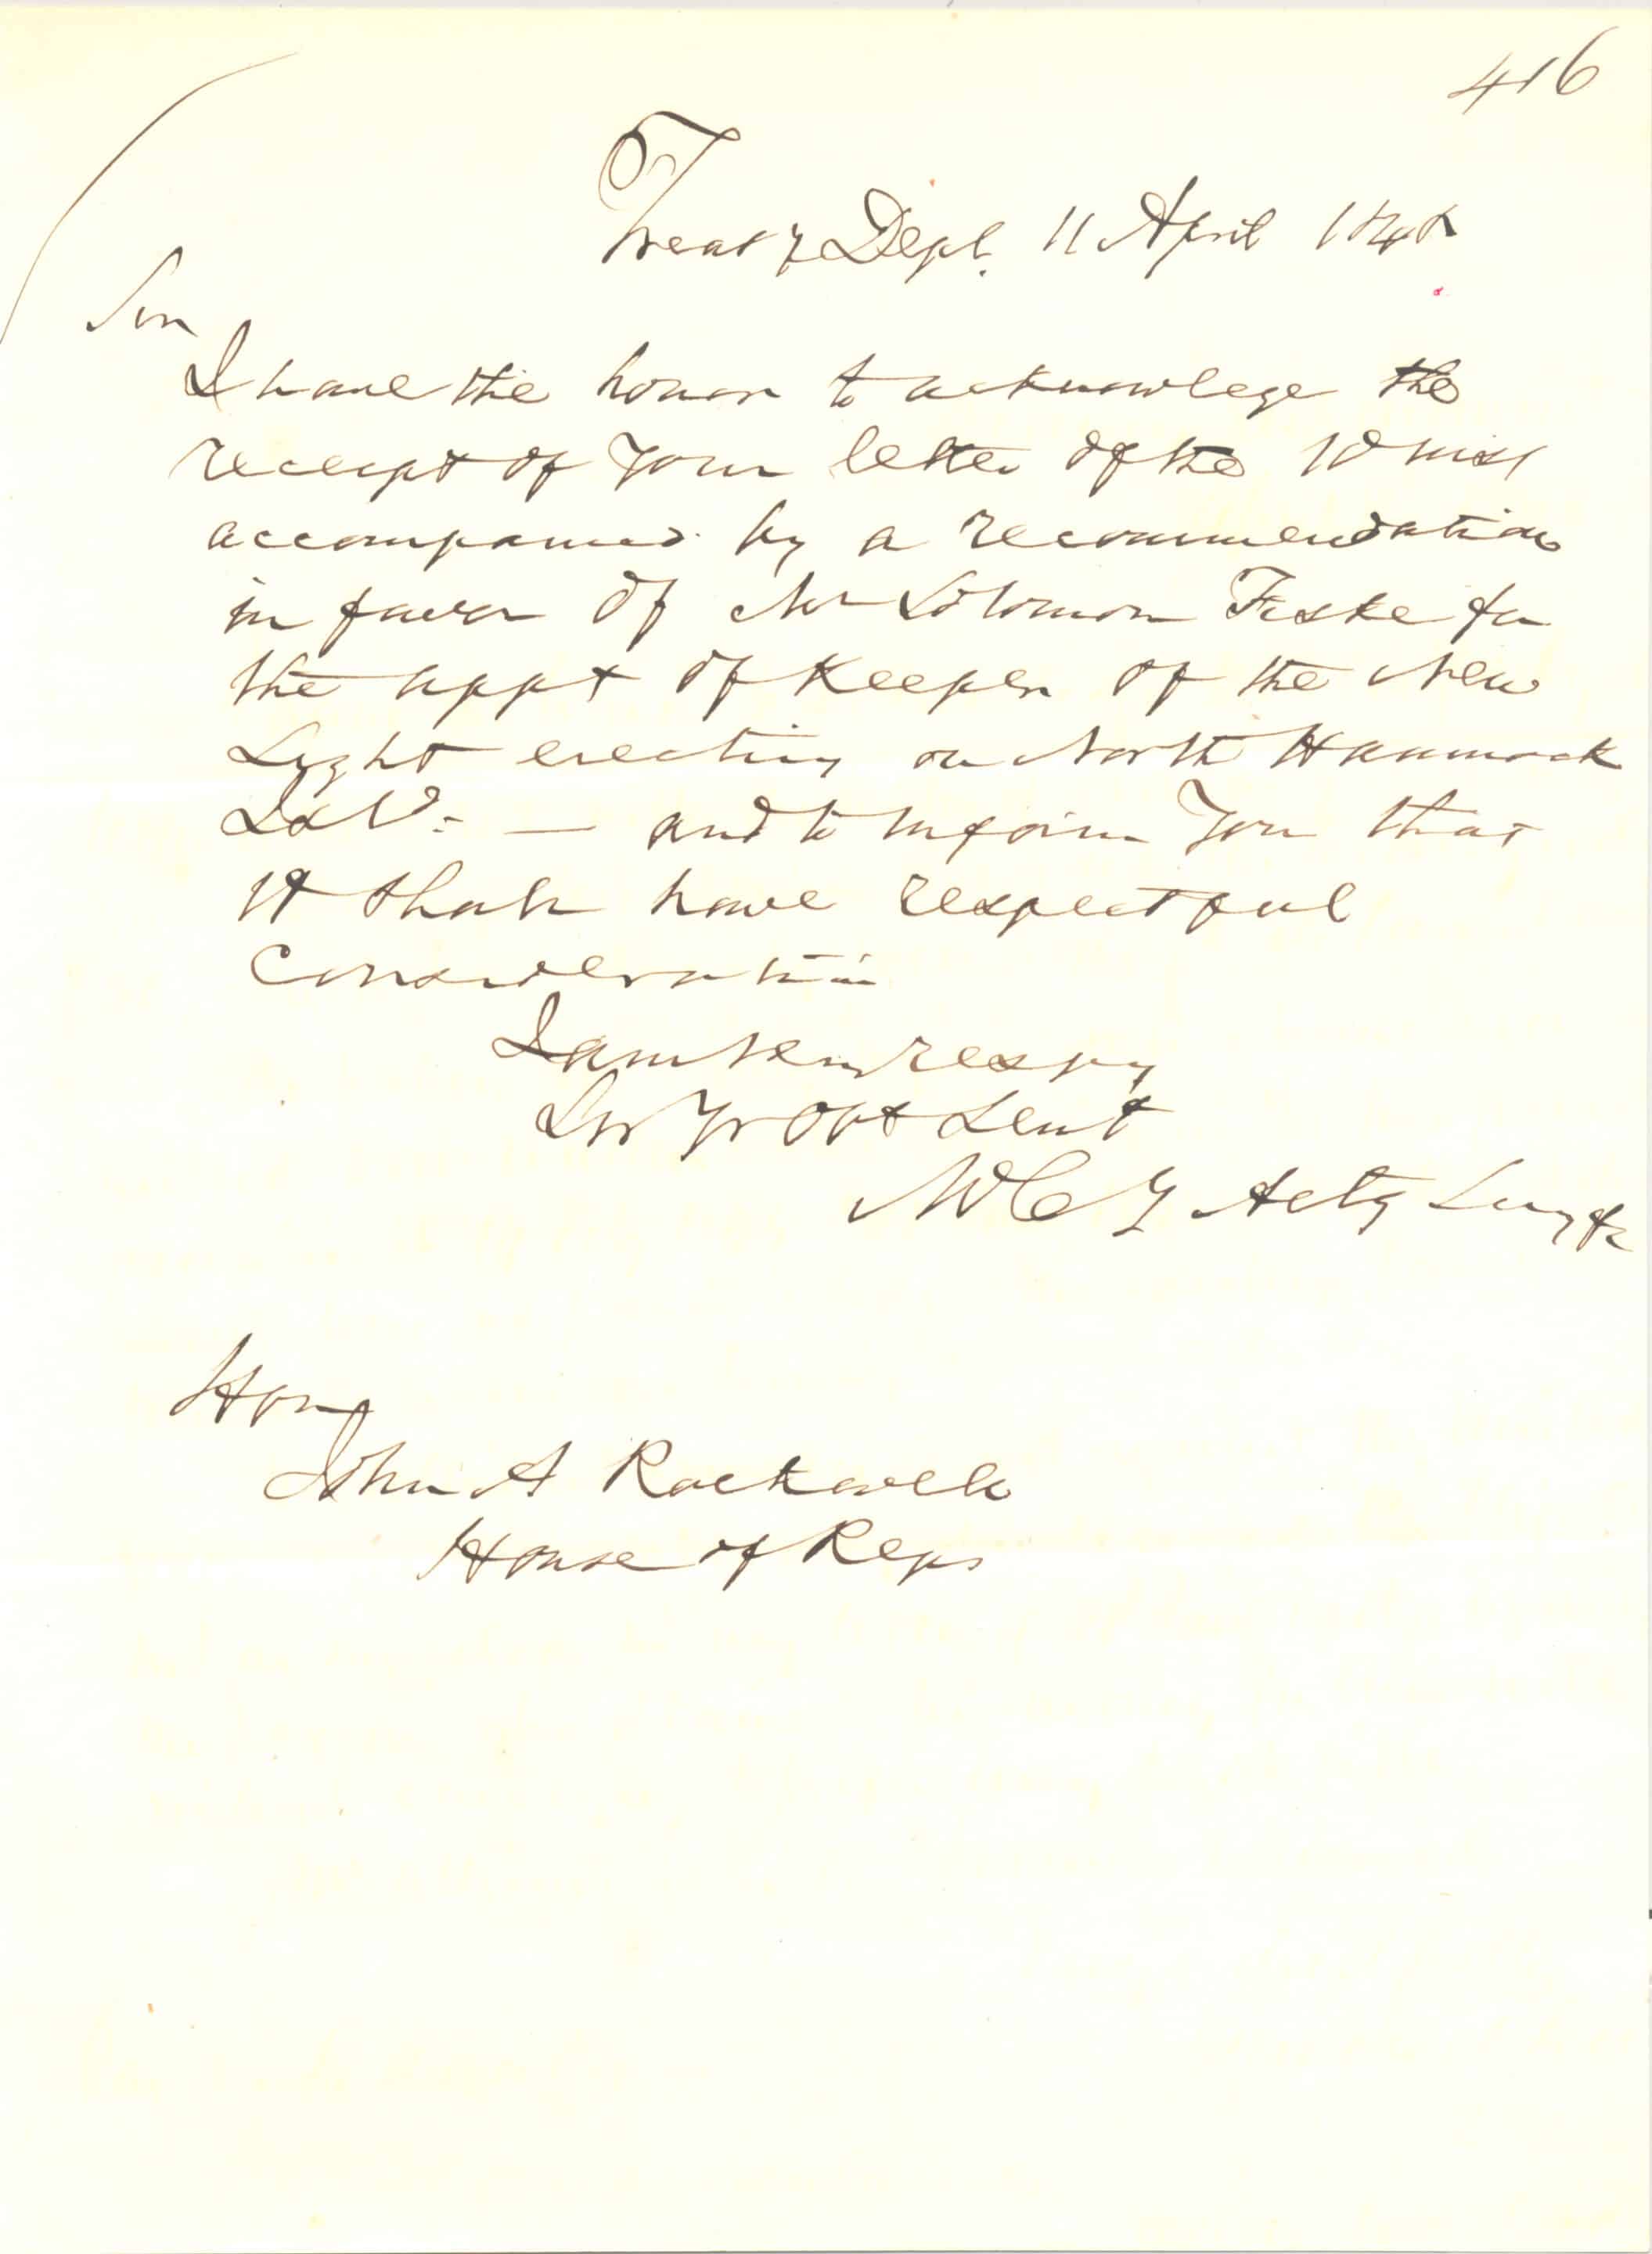 416
Treasy Dept. 11 April 1848
Sir
I have the honor to acknowlege the
receipt of your letter of the 10 inst
accompanied by a recommendation
in favor of Mr Solomon Fiske for
the appt of Keeper of the New
Light erecting on North Hammock
Isld: — and to inform you that
it shall have respectful
Consideration
I am very respy
Sir Yr Obt Sevt
McC Y Actg Secy Tr
Hon
John A Rockwell
House of Reps